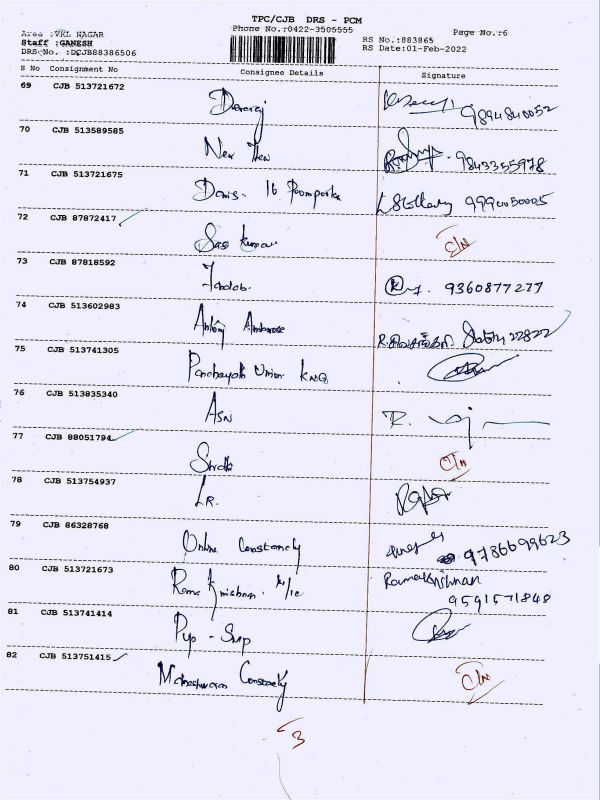 TPC/CJB DRS - PCM
Area :VRL NAGAR
Phone No.:0422-3505555
Page No.:6
Staff :GANESH
RS No.:883865
DRS No. :DCJB88386506
RS Date:01-Feb-2022
S No Consignment No Consignee Details Signature
69 CJB 513721672 Devaraj 9894840052
70 CJB 513589585 New 9843355978
71 CJB 513721675 Denis- 16
72 CJB 87872417 Sasi Kumar C/N
73 CJB 87818592 9360877277
74 CJB 513602983 Antony Ambrose
75 CJB 513741305 Panchayat Union KNG
76 CJB 513835340 ASN R.
77 CJB 88051794 C/N
78 CJB 513754937 L.R.
79 CJB 86328768 Online Constancly 9786699623
80 CJB 513721673 Rama Krishnan Ramakrishnan
9591571848
81 CJB 513741414
82 CJB 513751415 Maheshwaran Constancly C/N
3